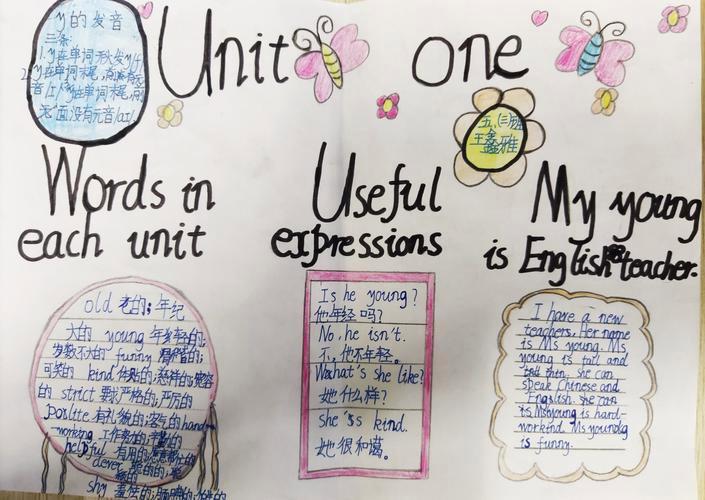 y的发音
三条:
1.y在单词开头发/j/
Unit one
五,(三)班
王鑫雅
Words in
each unit
old 老的;年纪
大的 young 年岁轻的;
岁数不大的 funny 滑稽的;
可笑的 kind 体贴的;慈祥的;宽容
的 strict 要求严格的;严厉的
poslite 有礼貌的;客气的 hand-
working 工作努力的;辛勤的
helpful 有用的;
clever 聪明的;
shy 羞怯的;
Useful
expressions
Is he young?
他年轻吗?
No, he isn't.
不,他不年轻。
What's she like?
她什么样?
she's kind.
她很和蔼。
My young
is English teacher.
I have a new
teachers. Her name
is Ms young. Ms
young is tall and
thin. she can
speak Chinese and
English. she can
is Msyoung is hard-
workind. Ms young
is funny.